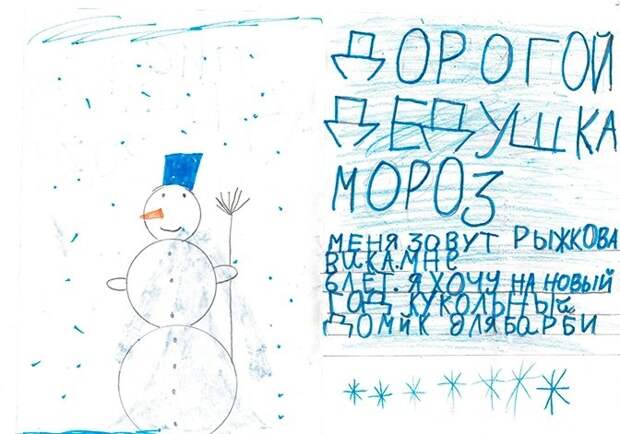 ДОРОГОЙ
ДЕДУШКА
МОРОЗ
МЕНЯ ЗОВУТ РЫЖКОВА
ВИКА. МНЕ
6 ЛЕТ. Я ХОЧУ НА НОВЫЙ
ГОД КУКОЛЬНЫЙ
ДОМИК ДЛЯ БАРБИ